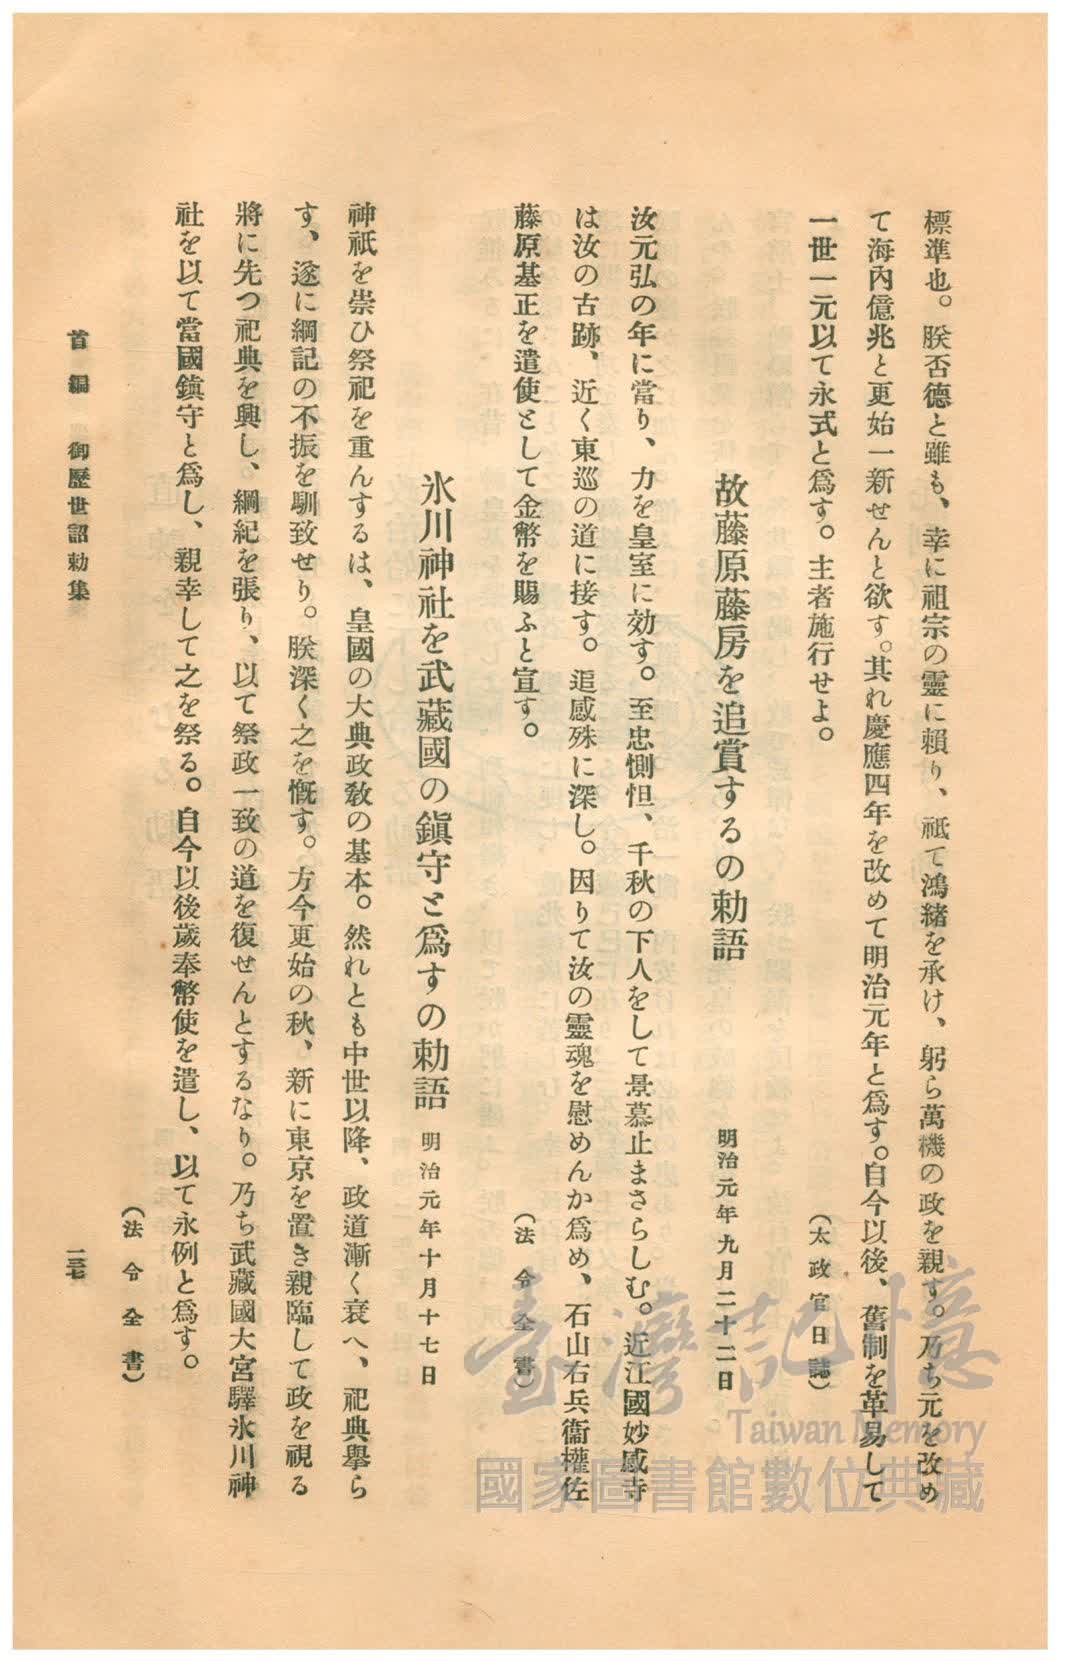 標準也。朕否德と雖も、幸に祖宗の靈に賴り、祗て鴻緒を承け、躬ら萬機の政を親す。乃ち元を改め
て海內億兆と更始一新せんと欲す。其れ慶應四年を改めて明治元年と爲す。自今以後、舊制を革易して
一世一元以て永式と爲す。主者施行せよ。
（太政官日誌）
故藤原藤房を追賞するの勅語
明治元年九月二十二日
汝元弘の年に當り、力を皇室に効す。至忠惻怛、千秋の下人をして景慕止まさらしむ。近江國妙感寺
は汝の古跡、近く東巡の道に接す。追感殊に深し。因りて汝の靈魂を慰めんか爲め、石山右兵衞權佐
藤原基正を遣使として金幣を賜ふと宣す。
（法令全書）
氷川神社を武藏國の鎭守と爲すの勅語
明治元年十月十七日
神祇を崇ひ祭祀を重んするは、皇國の大典政敎の基本。然れとも中世以降、政道漸く衰へ、祀典擧ら
す、遂に綱記の不振を馴致せり。朕深く之を慨す。方今更始の秋、新に東京を置き親臨して政を視る
將に先つ祀典を興し、綱紀を張り、以て祭政一致の道を復せんとするなり。乃ち武藏國大宮驛氷川神
社を以て當國鎭守と爲し、親幸して之を祭る。自今以後歲奉幣使を遣し、以て永例と爲す。
（法令全書）
首編 御歷世詔勅集
一三七
臺灣記憶
Taiwan Memory
國家圖書館數位典藏